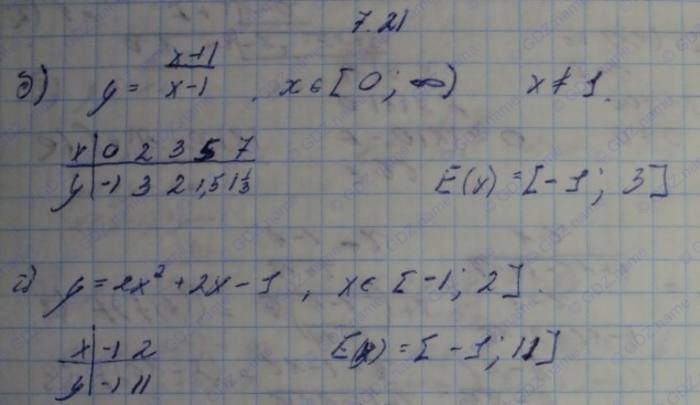 7.21
б) y = x+1/x-1, x ∈ [0; ∞) x ≠ 1.
x | 0 2 3 5 7
y | -1 3 2 1,5 1 1/3
E(x) = [-1; 3]
г) y = 2x² + 2x - 1, x ∈ [-1; 2].
x | -1 2
y | -1 11
E(x) = [-1; 11]